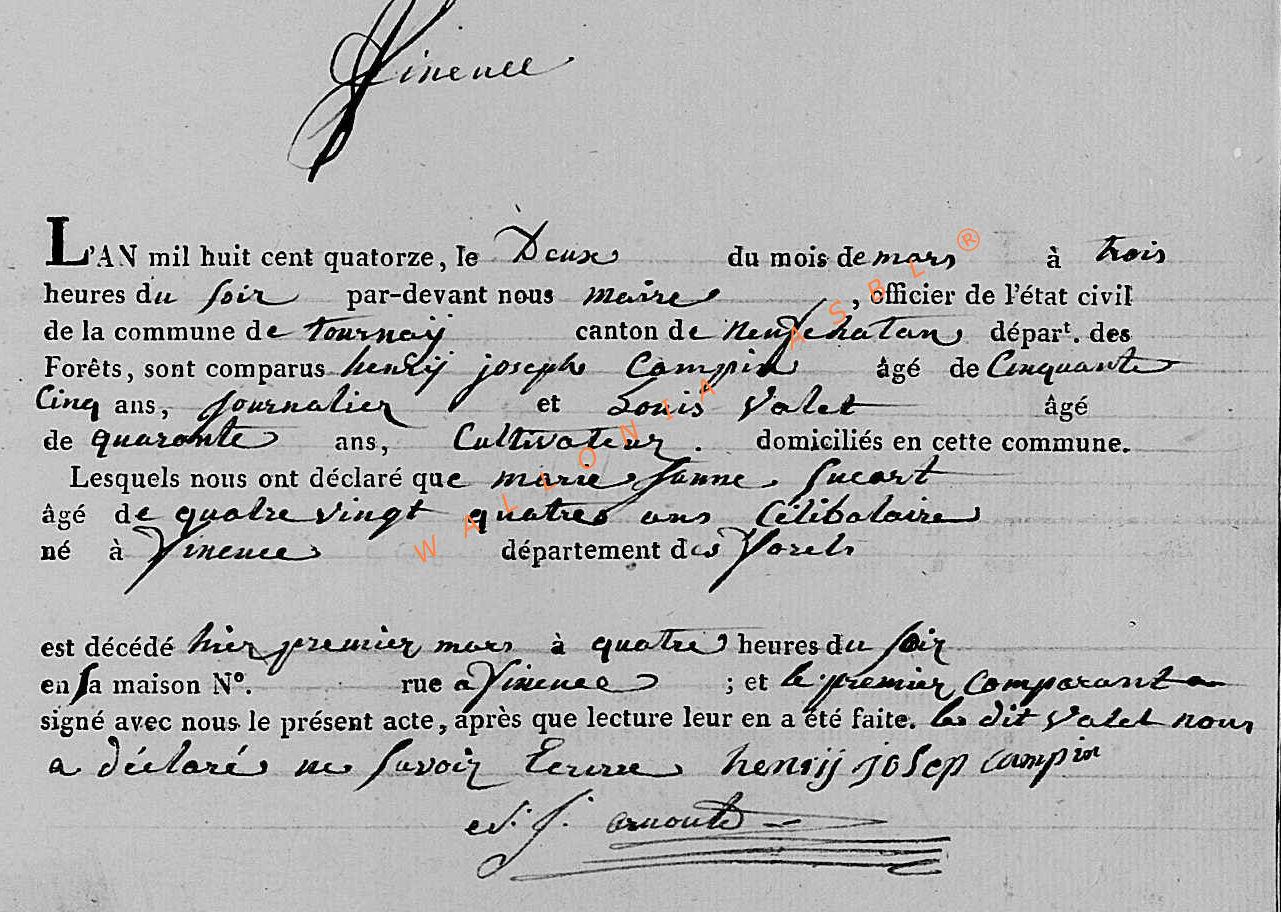 Vinence
L'AN mil huit cent quatorze, le Deux du mois de mars à trois
heures du soir par-devant nous maire, officier de l'état civil
de la commune de tournaÿ canton de neufchatau dépar.t des
Forêts, sont comparus henrÿ joseph Campin âgé de Cinquante
Cinq ans, journalier et Louis Valet âgé
de quarante ans, Cultivateur. domiciliés en cette commune.
Lesquels nous ont déclaré que marie Janne Sucart
âgé de quatre vingt quatres ans Célibataire
né à Vinence département des Forets
est décédé hier premier mars à quatre heures du soir
en sa maison N°. rue a Vinence ; et le premier Comparant a
signé avec nous le présent acte, après que lecture leur en a été faite. le dit Valet nous
a déclaré ne savoir Ecrire henrÿ josep campin
arnould
WALLONIA ASBL ®